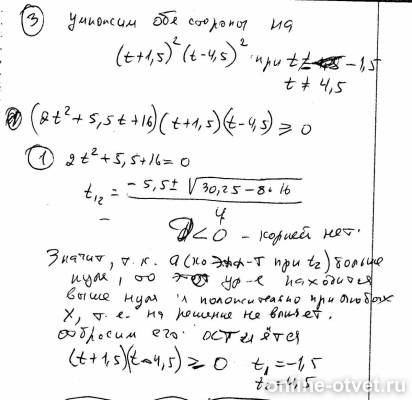 ③ Умножим обе стороны на
(t+1,5)² (t-4,5)² при t ≠ -1,5
t ≠ 4,5
(2t²+5,5t+16)(t+1,5)(t-4,5) ≥ 0
① 2t²+5,5+16=0
t₁₂ = -5,5± √30,25-8•16
4
D<0 - корней нет.
Значит, т.к. а (коэф-т при t₂) больше
нуля, то ур-е находится
выше нуля и положительно при любых
х, т.е. на решение не влияет.
отбросим его остаётся
(t+1,5)(t-4,5) ≥ 0 t₁=-1,5
t₂=4,5
online-otvet.ru